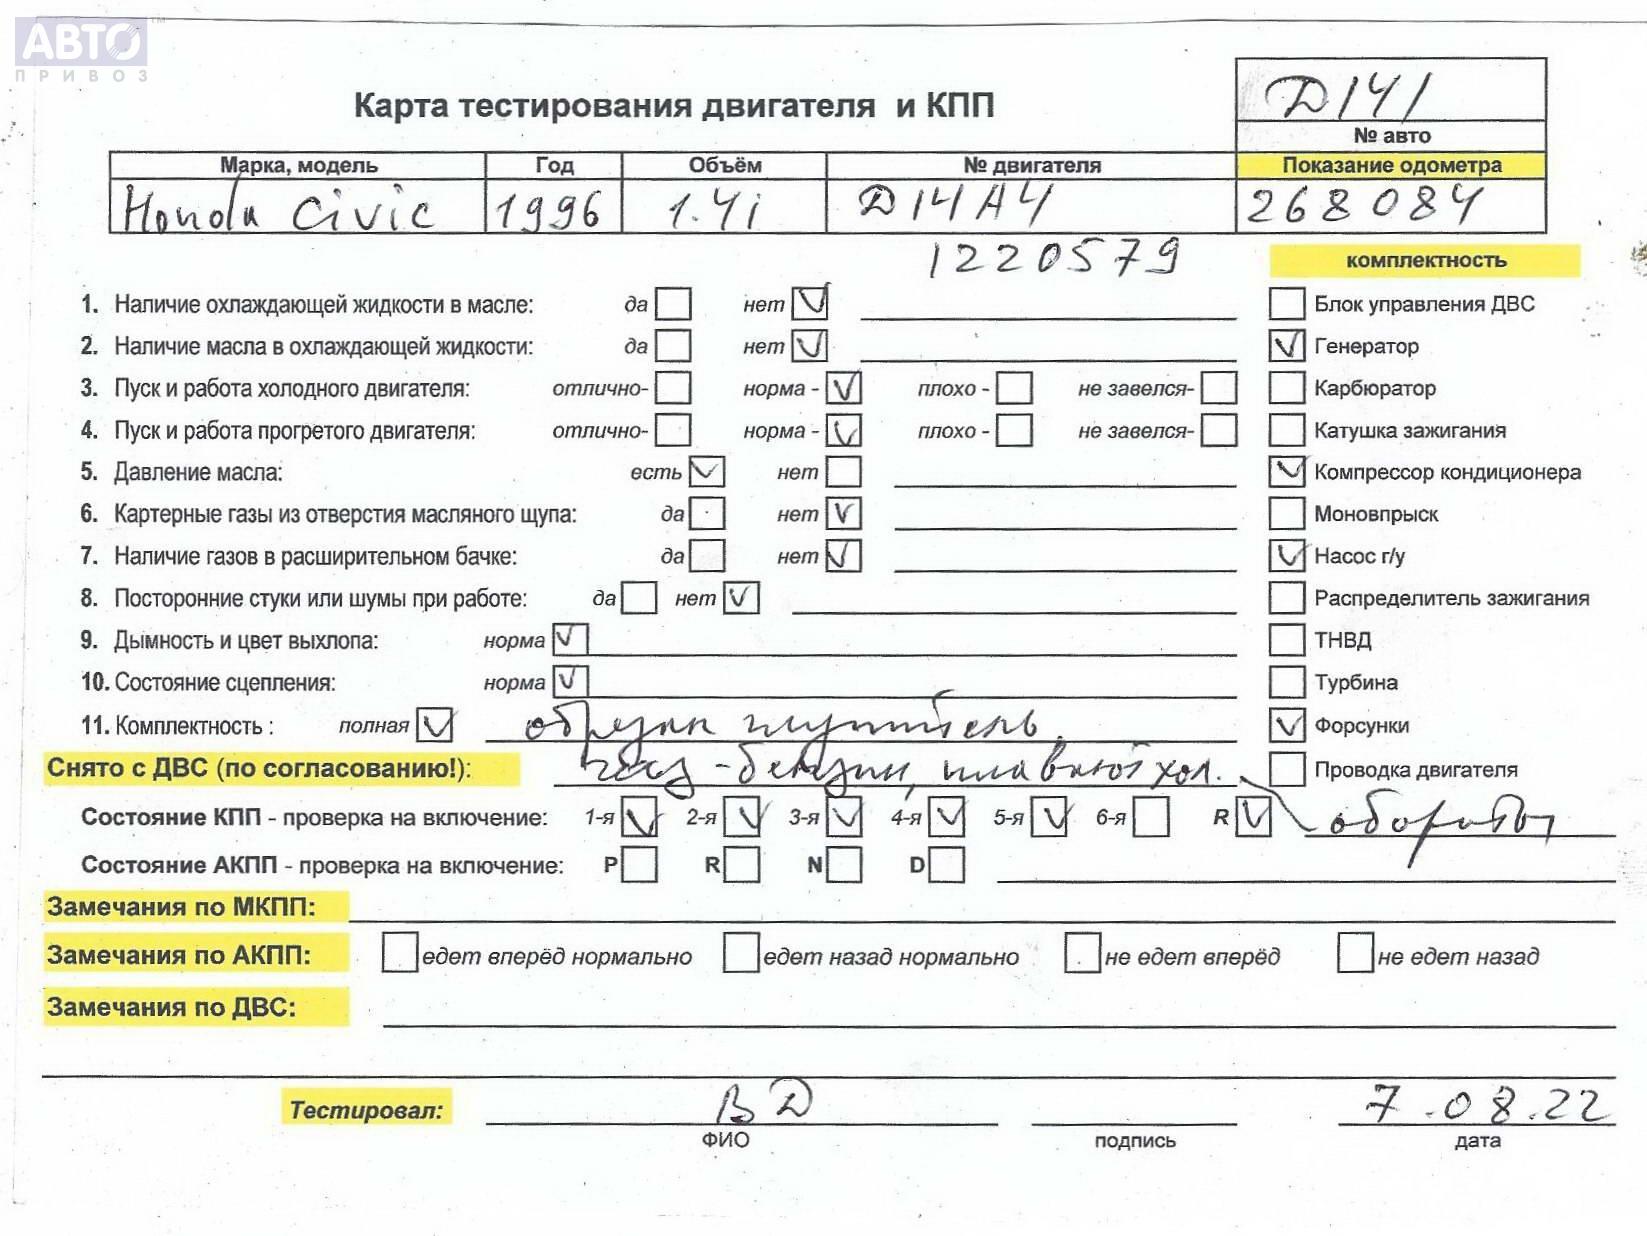 АВТО
ПРИВОЗ
Карта тестирования двигателя и КПП
D141
№ авто
Марка, модель Год Объём № двигателя Показание одометра
Honda Civic 1996 1.4i D14A4 268084
1220579
комплектность
1. Наличие охлаждающей жидкости в масле: да нет Блок управления ДВС
2. Наличие масла в охлаждающей жидкости: да нет Генератор
3. Пуск и работа холодного двигателя: отлично- норма - плохо - не завелся- Карбюратор
4. Пуск и работа прогретого двигателя: отлично- норма - плохо - не завелся- Катушка зажигания
5. Давление масла: есть нет Компрессор кондиционера
6. Картерные газы из отверстия масляного щупа: да нет Моновпрыск
7. Наличие газов в расширительном бачке: да нет Насос г/у
8. Посторонние стуки или шумы при работе: да нет Распределитель зажигания
9. Дымность и цвет выхлопа: норма ТНВД
10. Состояние сцепления: норма Турбина
11. Комплектность : полная обрезан глушитель, Форсунки
Снято с ДВС (по согласованию!): газ-бензин, плавают хол. Проводка двигателя
Состояние КПП - проверка на включение: 1-я 2-я 3-я 4-я 5-я 6-я R обороты
Состояние АКПП - проверка на включение: P R N D
Замечания по МКПП:
Замечания по АКПП: едет вперёд нормально едет назад нормально не едет вперёд не едет назад
Замечания по ДВС:
Тестировал: ВД 7.08.22
ФИО подпись дата